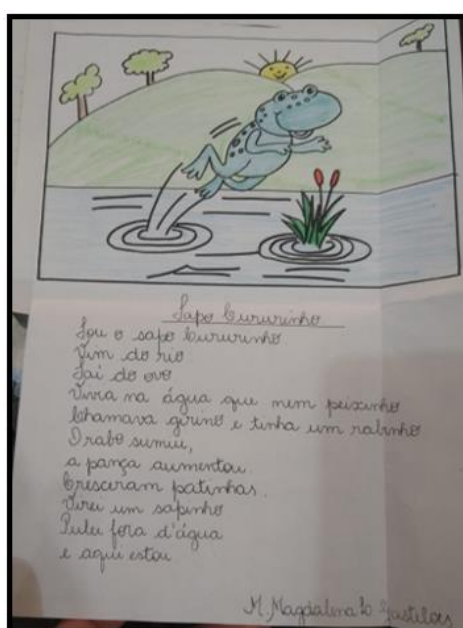 Sapo Cururinho
Sou o sapo Cururinho
Vim do rio
Saí do ovo
Vivia na água que nem peixinho
Chamava girino e tinha um rabinho
O rabo sumiu,
a pança aumentou.
Cresceram patinhas.
Virei um sapinho
Pulei fora d'água
e aqui estou
M. Magdalena